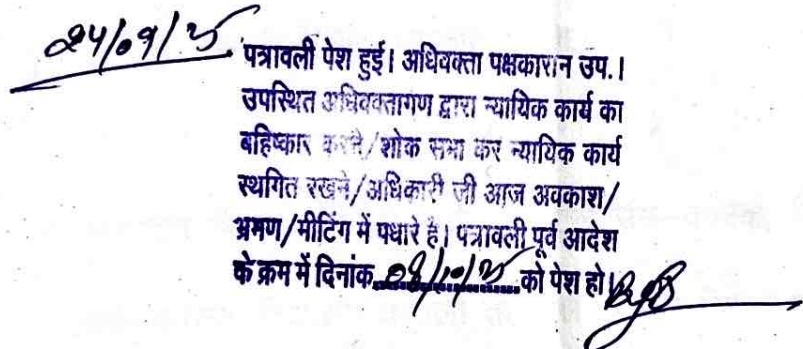 24/09/25
पत्रावली पेश हुई। अधिवक्ता पक्षकारान उप.।
उपस्थित अधिवक्तागण द्वारा न्यायिक कार्य का
बहिष्कार करने/शोक सभा कर न्यायिक कार्य
स्थगित रखने/अधिकारी जी आज अवकाश/
भ्रमण/मीटिंग में पधारे है। पत्रावली पूर्व आदेश
के क्रम में दिनांक 08/10/25 को पेश हो।